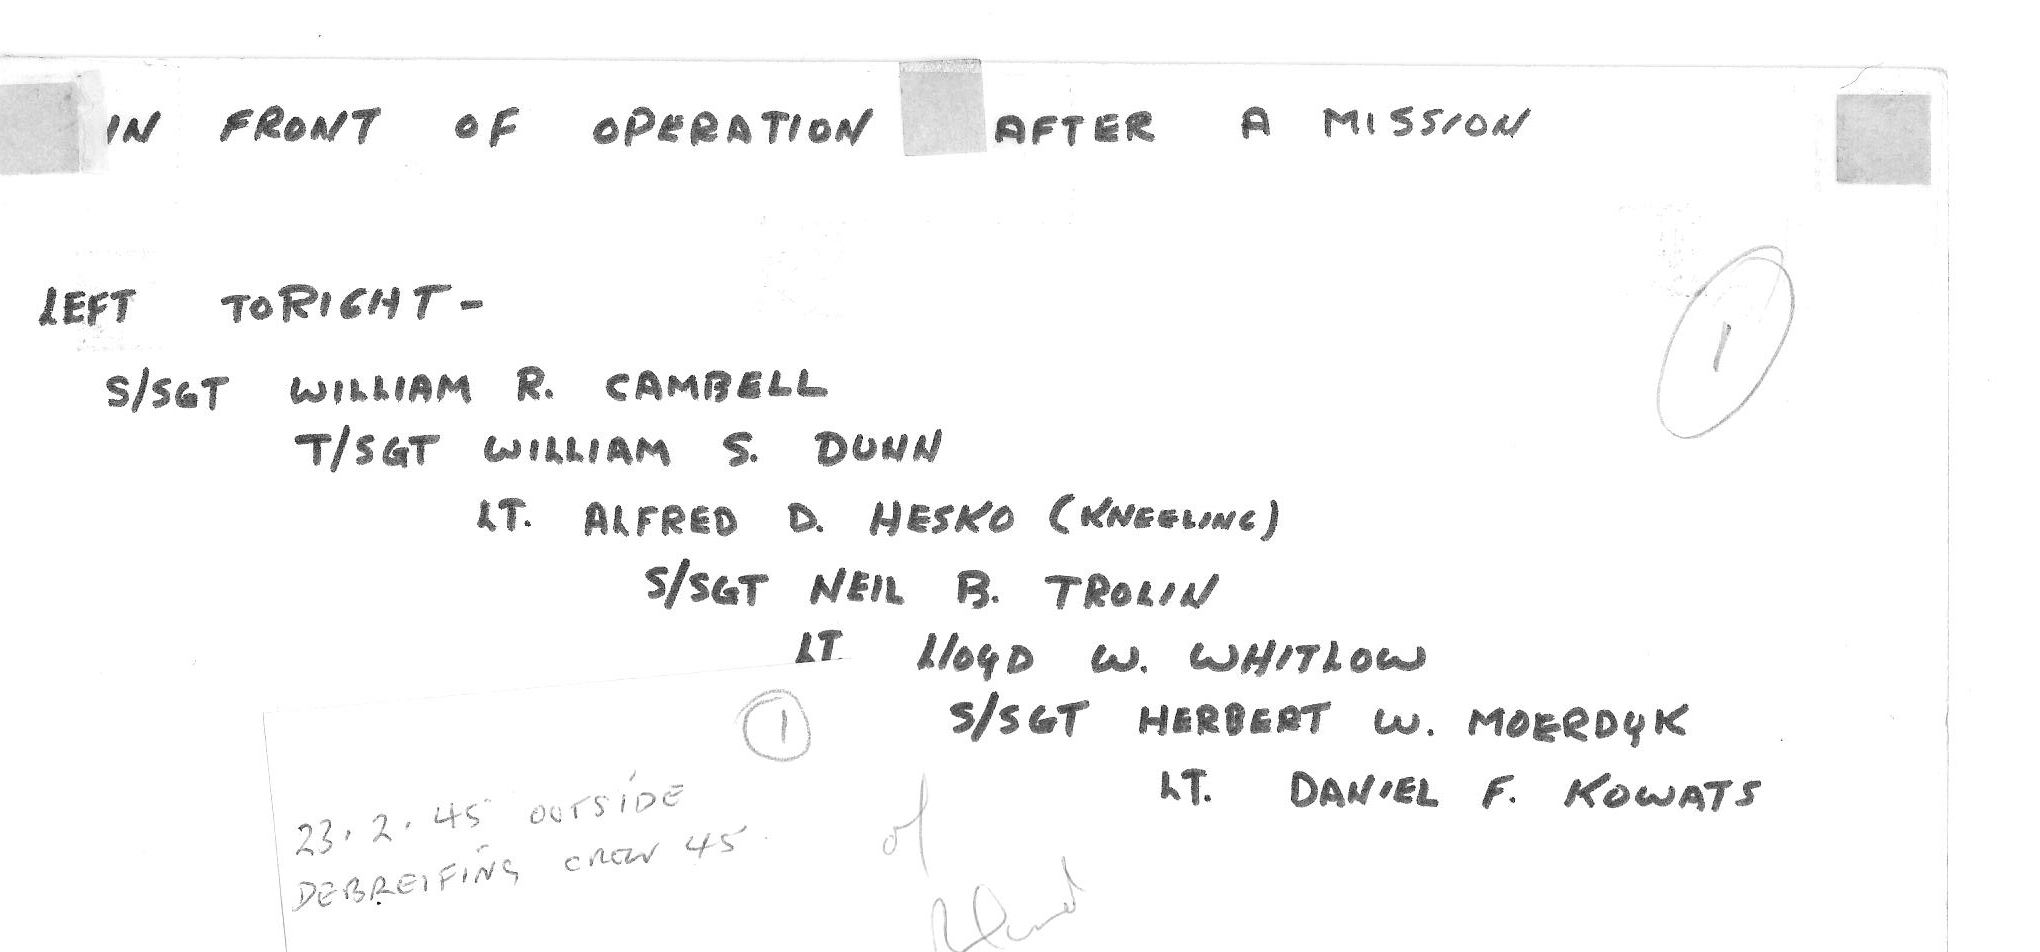 IN FRONT OF OPERATION AFTER A MISSION
LEFT TORIGHT-
1
S/SGT WILLIAM R. CAMBELL
T/SGT WILLIAM S. DUNN
LT. ALFRED D. HESKO (KNEELING)
S/SGT NEIL B. TROLIN
LT LLOYD W. WHITLOW
S/SGT HERBERT W. MOERDYK
LT. DANIEL F. KOWATS
1
23.2.45 OUTSIDE
DEBREIFING CREW 45.
of